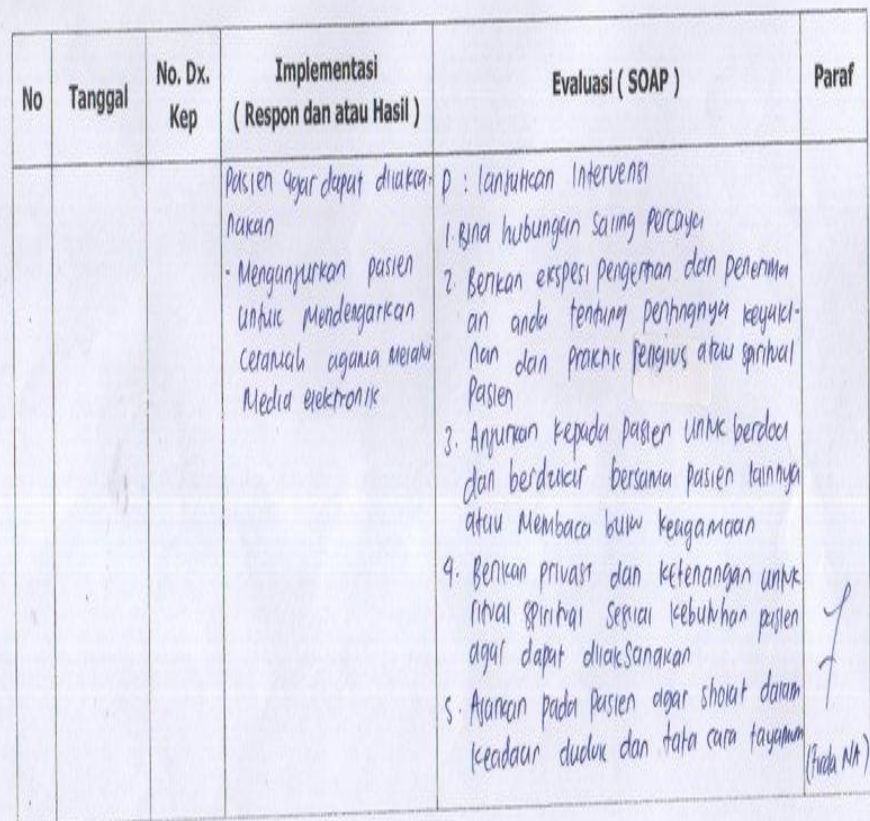 No
Tanggal
No. Dx.
Kep
Implementasi
( Respon dan atau Hasil )
Evaluasi ( SOAP )
Paraf
Pasien agar dapat dilaksa-
nakan
- Menganjurkan pasien
untuk Mendengarkan
ceramah agama Melalui
Media elektronik
P : lanjutkan Intervensi
1. Bina hubungan saling percaya
2. Berikan ekspesi pengertian dan penerima
an anda tentang pentingnya keyaki-
nan dan praktik religius atau spiritual
Pasien
3. Anjurkan kepada pasien untuk berdoa
dan berdzikir bersama pasien lainnya
atau Membaca buku keagamaan
4. Berikan privasi dan ketenangan untuk
ritual spiritual sesuai kebutuhan pasien
agar dapat dilaksanakan
5. Ajarkan pada pasien agar sholat dalam
keadaan duduk dan tata cara tayamum
NA)